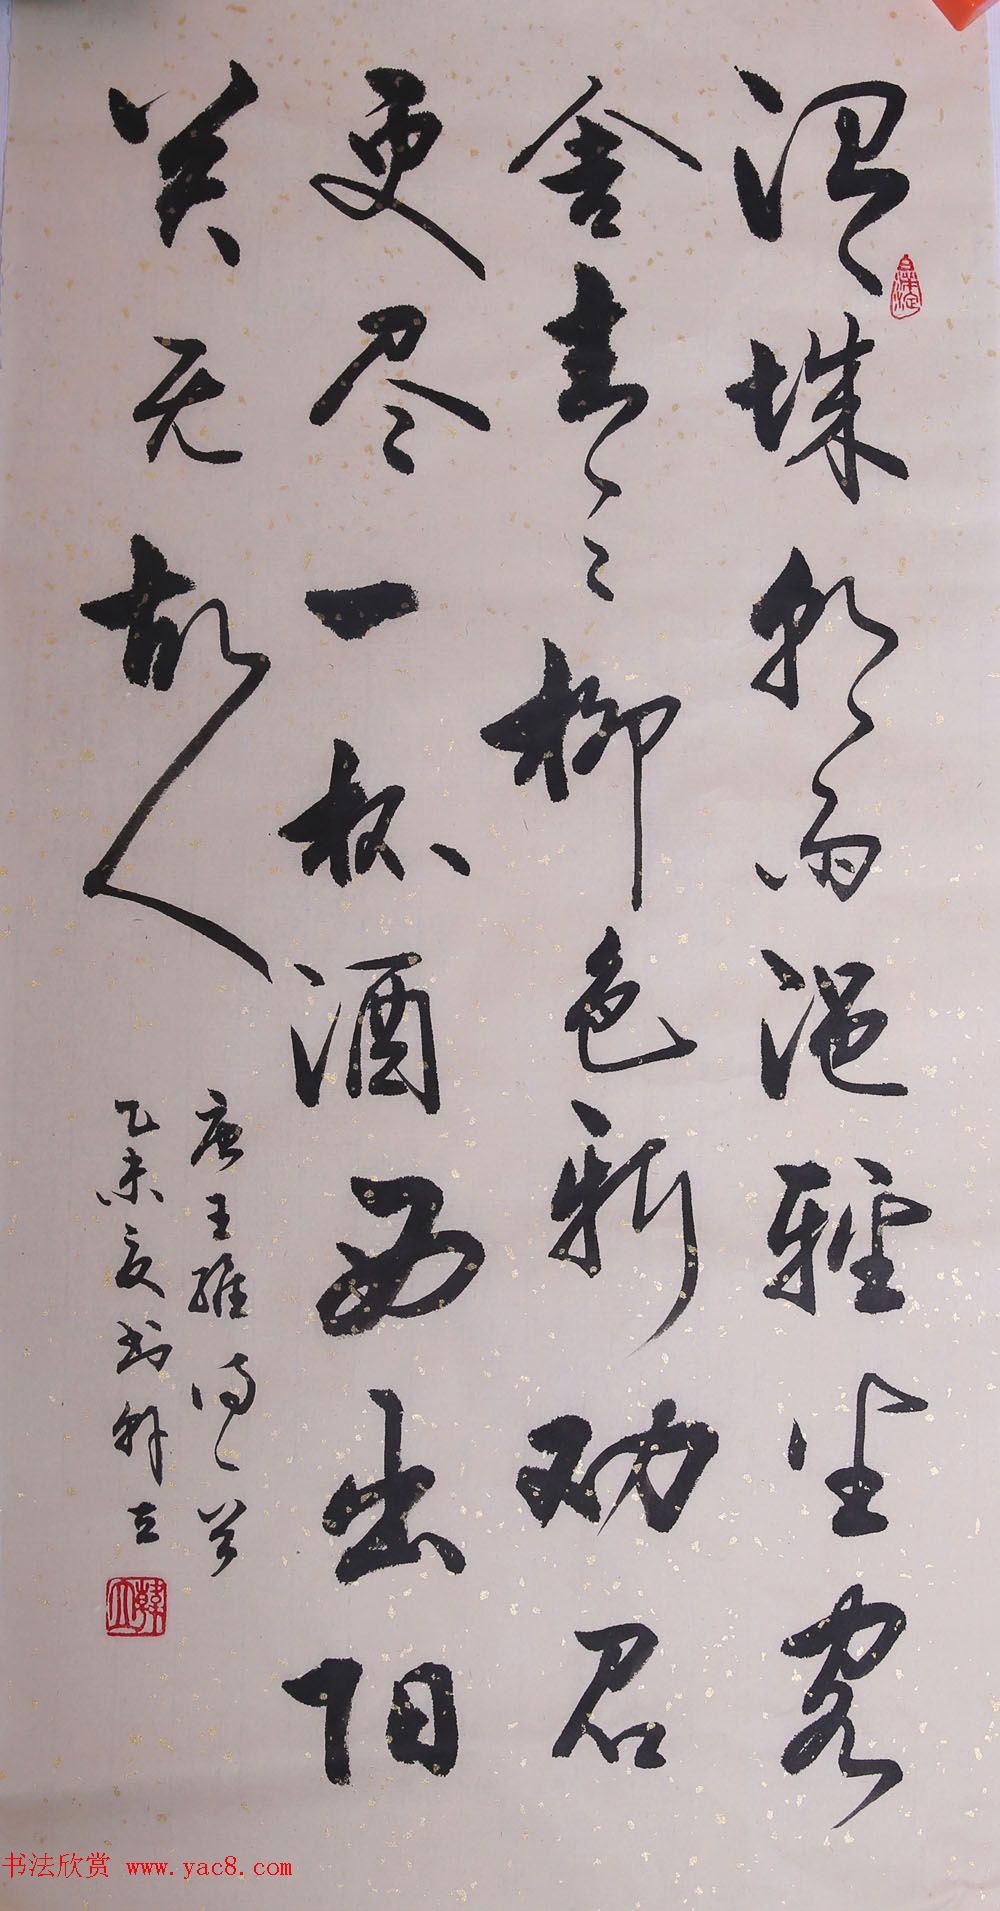 渭城朝雨浥輕尘客
舍青々柳色新劝君
更尽一杯酒西出阳
关无故人
唐王维诗一首
乙未夏书韩立
韓立
书法欣赏 www.yac8.com